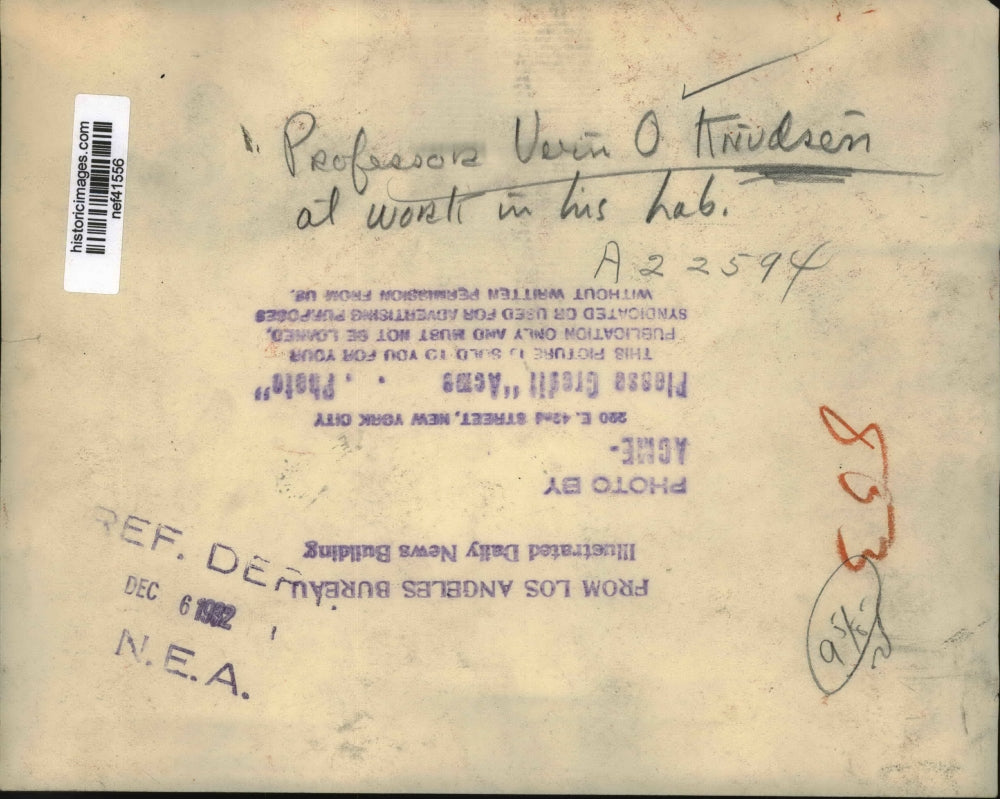 historicimages.com
nef41556
Professor Vern O Knudsen
at work in his Lab.
A22594
PHOTO BY
ACME-
220 E. 42nd STREET, NEW YORK CITY
Please Credit "Acme . . Photo"
THIS PICTURE IS SOLD TO YOU FOR YOUR
PUBLICATION ONLY AND MUST NOT BE LOANED,
SYNDICATED OR USED FOR ADVERTISING PURPOSES
WITHOUT WRITTEN PERMISSION FROM US.
FROM LOS ANGELES BUREAU
Illustrated Daily News Building
REF. DEPT.
DEC 6 1932
N.E.A.